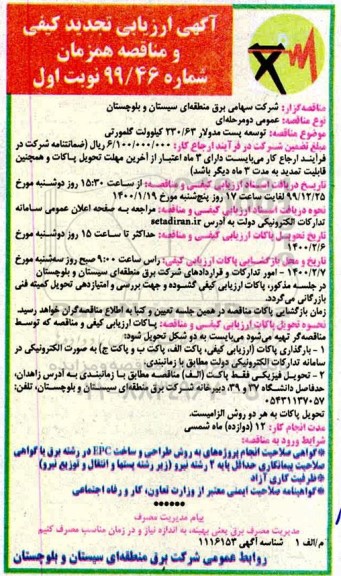 آگهی ارزیابی تجدید کیفی
و مناقصه همزمان
شماره ۹۹/۴۶ نوبت اول
مناقصه‌گزار: شرکت سهامی برق منطقه‌ای سیستان و بلوچستان
نوع مناقصه: عمومی دومرحله‌ای
موضوع مناقصه: توسعه پست مدولار ۲۳۰/۶۳ کیلوولت گلمورتی
مبلغ تضمین شرکت در فرآیند ارجاع کار: ۶/۱۰۰/۰۰۰/۰۰۰ ریال (ضمانتنامه شرکت در
فرایند ارجاع کار می‌بایست دارای ۳ ماه اعتبار از آخرین مهلت تحویل پاکات و همچنین
قابلیت تمدید به مدت ۳ ماه دیگر باشد)
تاریخ دریافت اسناد ارزیابی کیفی و مناقصه: از ساعت ۱۵:۳۰ روز دوشنبه مورخ
۹۹/۱۲/۲۵ لغایت ساعت ۱۷ روز پنج‌شنبه مورخ ۱۴۰۰/۱/۱۹
نحوه دریافت اسناد ارزیابی کیفی و مناقصه: مراجعه به صفحه اعلان عمومی سامانه
تدارکات الکترونیکی دولت به آدرس setadiran.ir
تاریخ تحویل پاکات ارزیابی کیفی و مناقصه: حداکثر تا ساعت ۱۵ روز دوشنبه مورخ
۱۴۰۰/۲/۶
تاریخ و محل بازگشایی پاکات ارزیابی کیفی: راس ساعت ۹:۰۰ صبح روز سه‌شنبه مورخ
۱۴۰۰/۲/۷ – امور تدارکات و قراردادهای شرکت برق منطقه‌ای سیستان و بلوچستان
در جلسه مذکور، پاکات ارزیابی کیفی گشوده و جهت بررسی و امتیازدهی تحویل کمیته فنی
بازرگانی می‌گردد.
زمان بازگشایی پاکات مناقصه در همین جلسه تعیین و کتبا به اطلاع مناقصه‌گران خواهد رسید.
نحوه تحویل پاکات ارزیابی کیفی و مناقصه: پاکات ارزیابی کیفی و مناقصه که توسط
مناقصه‌گر تهیه می‌شود می‌بایست به دو شکل تحویل شود:
۱ – بارگذاری پاکات (ارزیابی کیفی، پاکت الف، پاکت ب و پاکت ج) به صورت الکترونیکی در
سامانه تدارکات الکترونیکی دولت مطابق با زمانبندی.
۲ – تحویل فیزیکی فقط پاکت (الف) مناقصه مطابق با زمانبندی به آدرس زاهدان،
حدفاصل دانشگاه ۳۷ و ۳۹، دبیرخانه شرکت برق منطقه‌ای سیستان و بلوچستان، تلفن:
۰۵۴۳۱۱۳۷۰۵۷
تحویل پاکات به هر دو روش الزامیست.
مدت انجام کار: ۱۲ (دوازده) ماه شمسی
شرایط ورود به مناقصه:
*گواهی صلاحیت انجام پروژه‌های به روش طراحی و ساخت EPC در رشته برق یا گواهی
صلاحیت پیمانکاری حداقل پایه ۲ رشته نیرو (زیر رشته پستها و انتقال و توزیع نیرو)
*ظرفیت کاری آزاد
*گواهینامه صلاحیت ایمنی معتبر از وزارت تعاون، کار و رفاه اجتماعی
پیام مدیریت مصرف
مدیریت مصرف برق یعنی بهینه، به اندازه نیاز و در زمان مناسب مصرف کنیم
م/الف ۱ شناسه آگهی ۱۱۱۶۱۵۳
روابط عمومی شرکت برق منطقه‌ای سیستان و بلوچستان